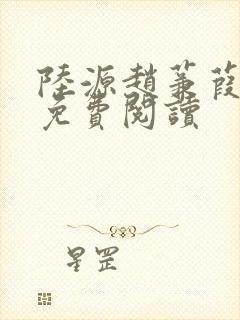 陸源趙蒹葭
免費閱讀
星罡